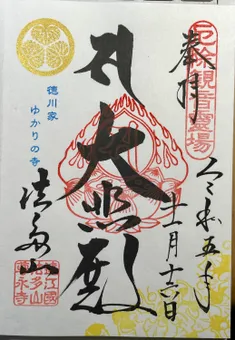 厄除観音霊場
奉拝
令和五年
十一月十六日
大悲殿
徳川家
ゆかりの寺
法多山
遠江國
法多山
尊永寺